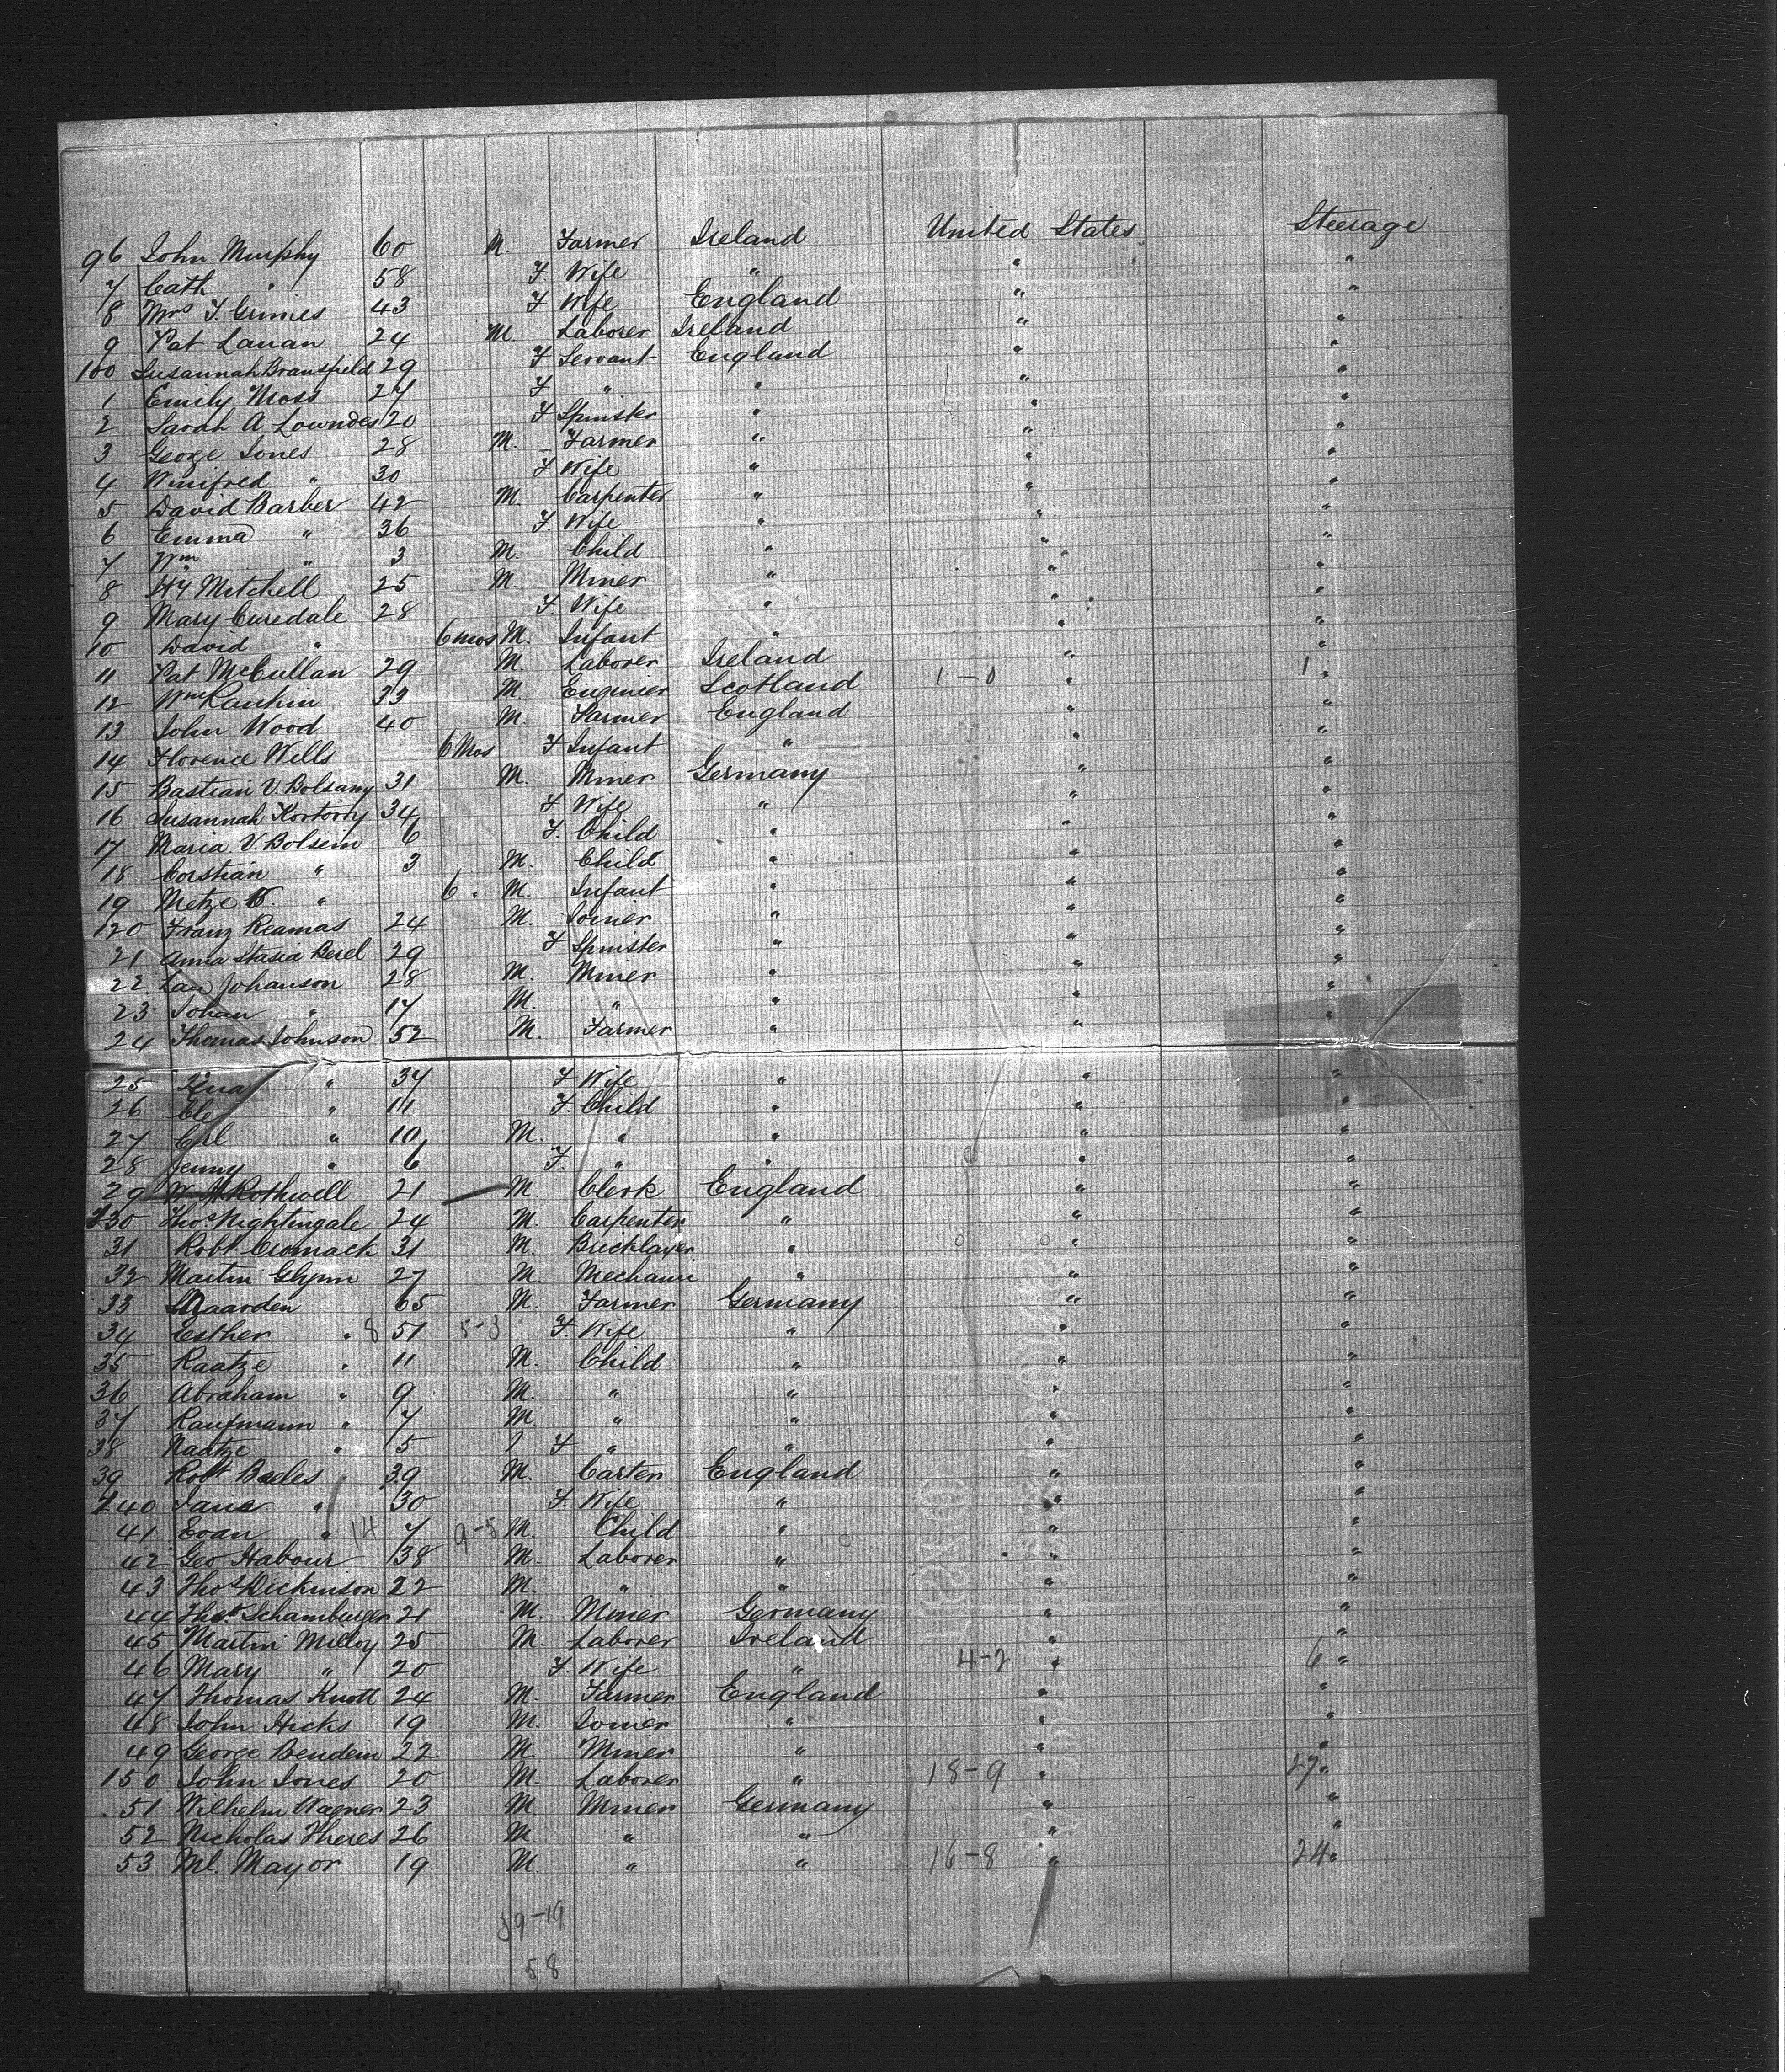 96 John Murphy 60 M. Farmer Ireland United States Steerage
7 Cath " 58 F Wife " " "
8 Mrs J. Grimes 43 F Wife England " "
9 Pat Lanan 24 M. Laborer Ireland " "
100 Susannah Bransfield 29 F Servant England " "
1 Emily Moss 27 F " " " "
2 Sarah A Lowndes 20 F Spinster " " "
3 George Jones 28 M. Farmer " " "
4 Winifred " 30 F Wife " " "
5 David Barber 42 M. Carpenter " " "
6 Emma " 36 F. Wife " " "
7 Wm " 3 M. Child " " "
8 Hy Mitchell 25 M. Miner " " "
9 Mary Curedale 28 F. Wife " " "
10 David " 6 mos M. Infant " " "
11 Pat McCullan 29 M. Laborer Ireland " "
12 Wm Rankin 33 M. Enginier Scotland 1-0 " 1 "
13 John Wood 40 M. Farmer England " "
14 Florence Wells 6 Mos F Infant " " "
15 Bastian V. Bolsany 31 M. Miner Germany " "
16 Susannah 34 F Wife " " "
17 Maria V. Bolsem 6 F. Child " " "
18 Corstian " 3 M. Child " " "
19 Metze " 6 " M. Infant " " "
120 Franz Reamas 24 M. Joiner " " "
21 Anna Stasia Besel 29 F Spinster " " "
22 Lau Johanson 28 M. Miner " " "
23 Johan " 17 M. " " " "
24 Thomas Johnson 52 M. Farmer " " "
25 " 37 F Wife " " "
26 Cle " 11 F. Child " " "
27 Carl " 10 M. " " " "
28 Jenny " 6 F. " " " "
29 W H Rothwell 21 M. Clerk England " "
130 Thos Nightingale 24 M. Carpenter " " "
31 Robt Cromack 31 M. Bricklayer " " "
32 Martin Glynn 27 M. Mechanic " " "
33 Naarden 65 M. Farmer Germany " "
34 Esther " 8 51 5-3 F. Wife " " "
35 Raatze " 11 M. Child " " "
36 Abraham " 9 M. " " " "
37 Kaufmann " 7 M. " " " "
38 Naatze " 5 F " " " "
39 Robt Beeles 39 M. Carter England " "
140 Jane " 30 F. Wife " " "
41 Evan " 14 7 9-5 M. Child " " "
42 Geo Habour 38 M. Laborer " " "
43 Thos Dickinson 22 M. " " " "
44 Thos Schamburger 21 M. Miner Germany " "
45 Martin Milloy 25 M. Laborer Ireland " "
46 Mary " 20 F. Wife " 4-2 " 6 "
47 Thomas Knott 24 M. Farmer England " "
48 John Hicks 19 M. Joiner " " "
49 George Bendein 22 M. Miner " " "
150 John Jones 20 M. Laborer " 18-9 " 27 "
51 Wilhelm Wagner 23 M. Miner Germany " "
52 Nicholas Theres 26 M. " " " "
53 Ml. Mayor 19 M. " " 16-8 " 24 "
39-19
58